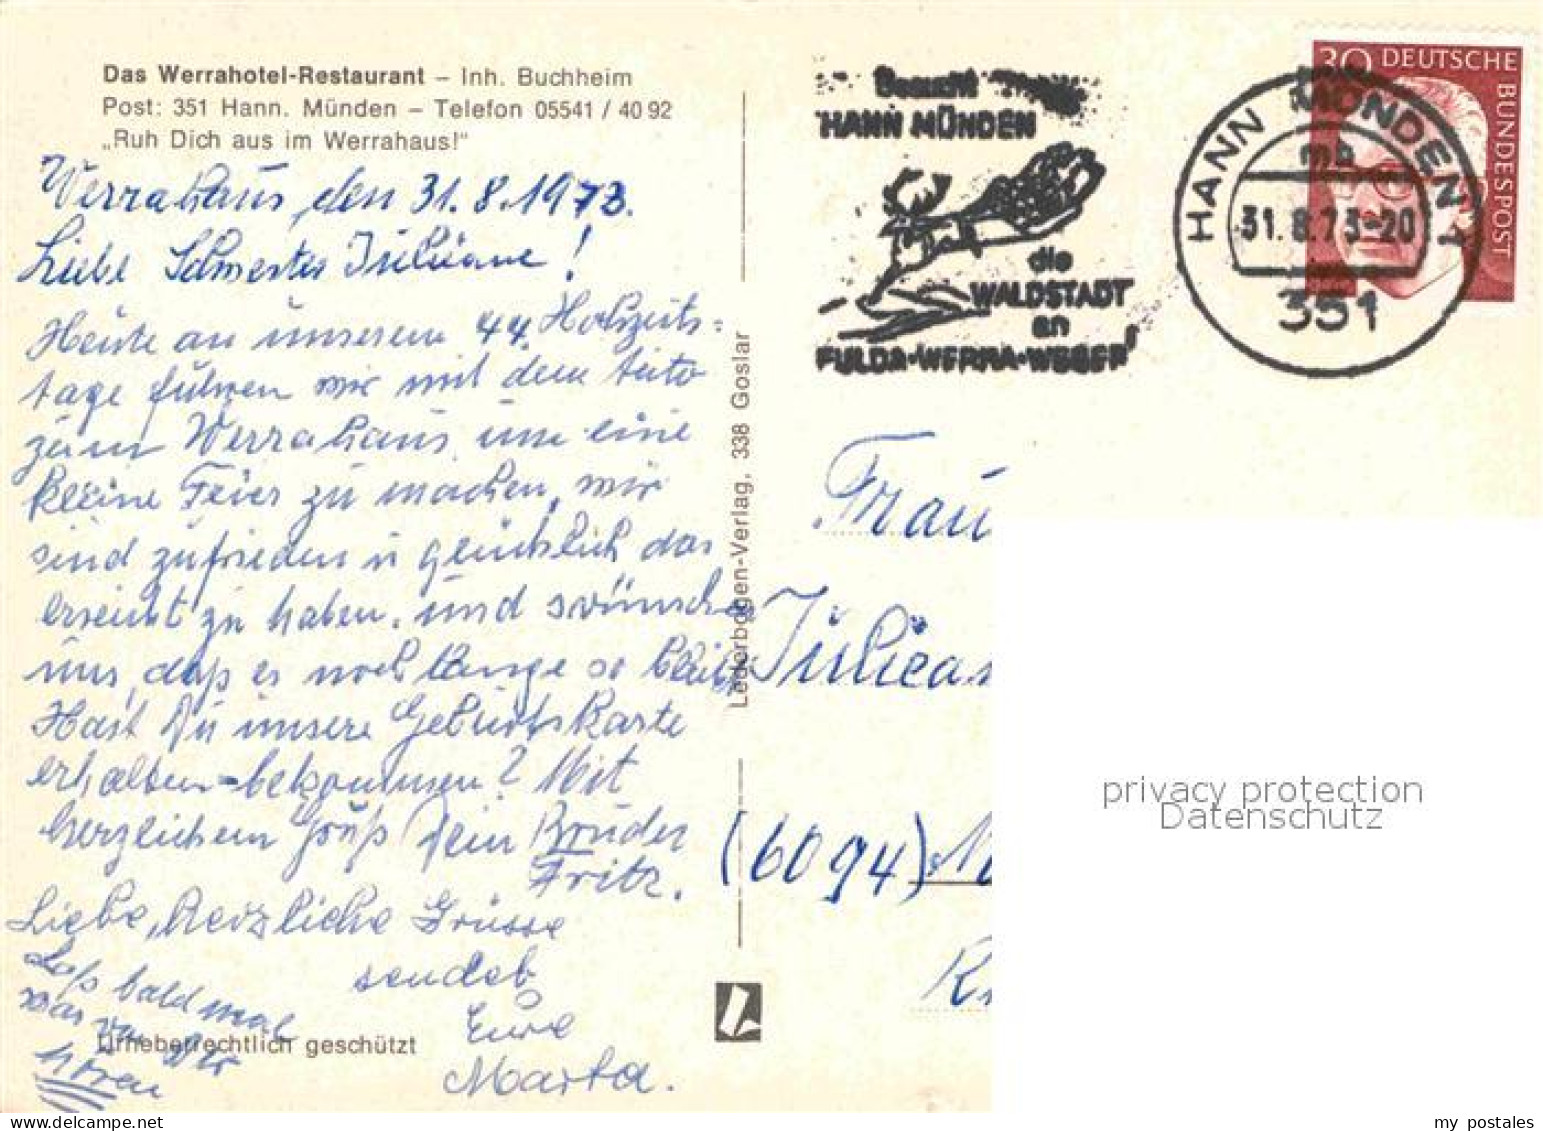 Das Werrahotel-Restaurant – Inh. Buchheim
Post: 351 Hann. Münden – Telefon 05541 / 40 92
„Ruh Dich aus im Werrahaus!"
Werrahaus, den 31.8.1973.
Liebe Schwester Juliane!
Heute an unserem 44. Hochzeits=
tage fuhren wir mit dem Auto
zum Werrahaus um eine
kleine Feier zu machen, wir
sind zufrieden u glücklich das
erreicht zu haben. und wünschen
uns, daß es noch lange so bleibt
Hast Du unsere Geburtskarte
erhalten-bekommen? Mit
herzlichem Gruß Dein Bruder
Fritz.
Liebe, herzliche Grüsse
sendet
Eure
Marta.
Laß bald mal
was von Dir
hören
Urheberrechtlich geschützt
Lederbogen-Verlag, 338 Goslar
Besucht
HANN MÜNDEN
die
WALDSTADT
an
FULDA·WERRA·WESER
HANN MÜNDEN 1
mb
31.8.73-20
351
30 DEUTSCHE
BUNDESPOST
Frau
Julian
(6094)
privacy protection
Datenschutz
my postales